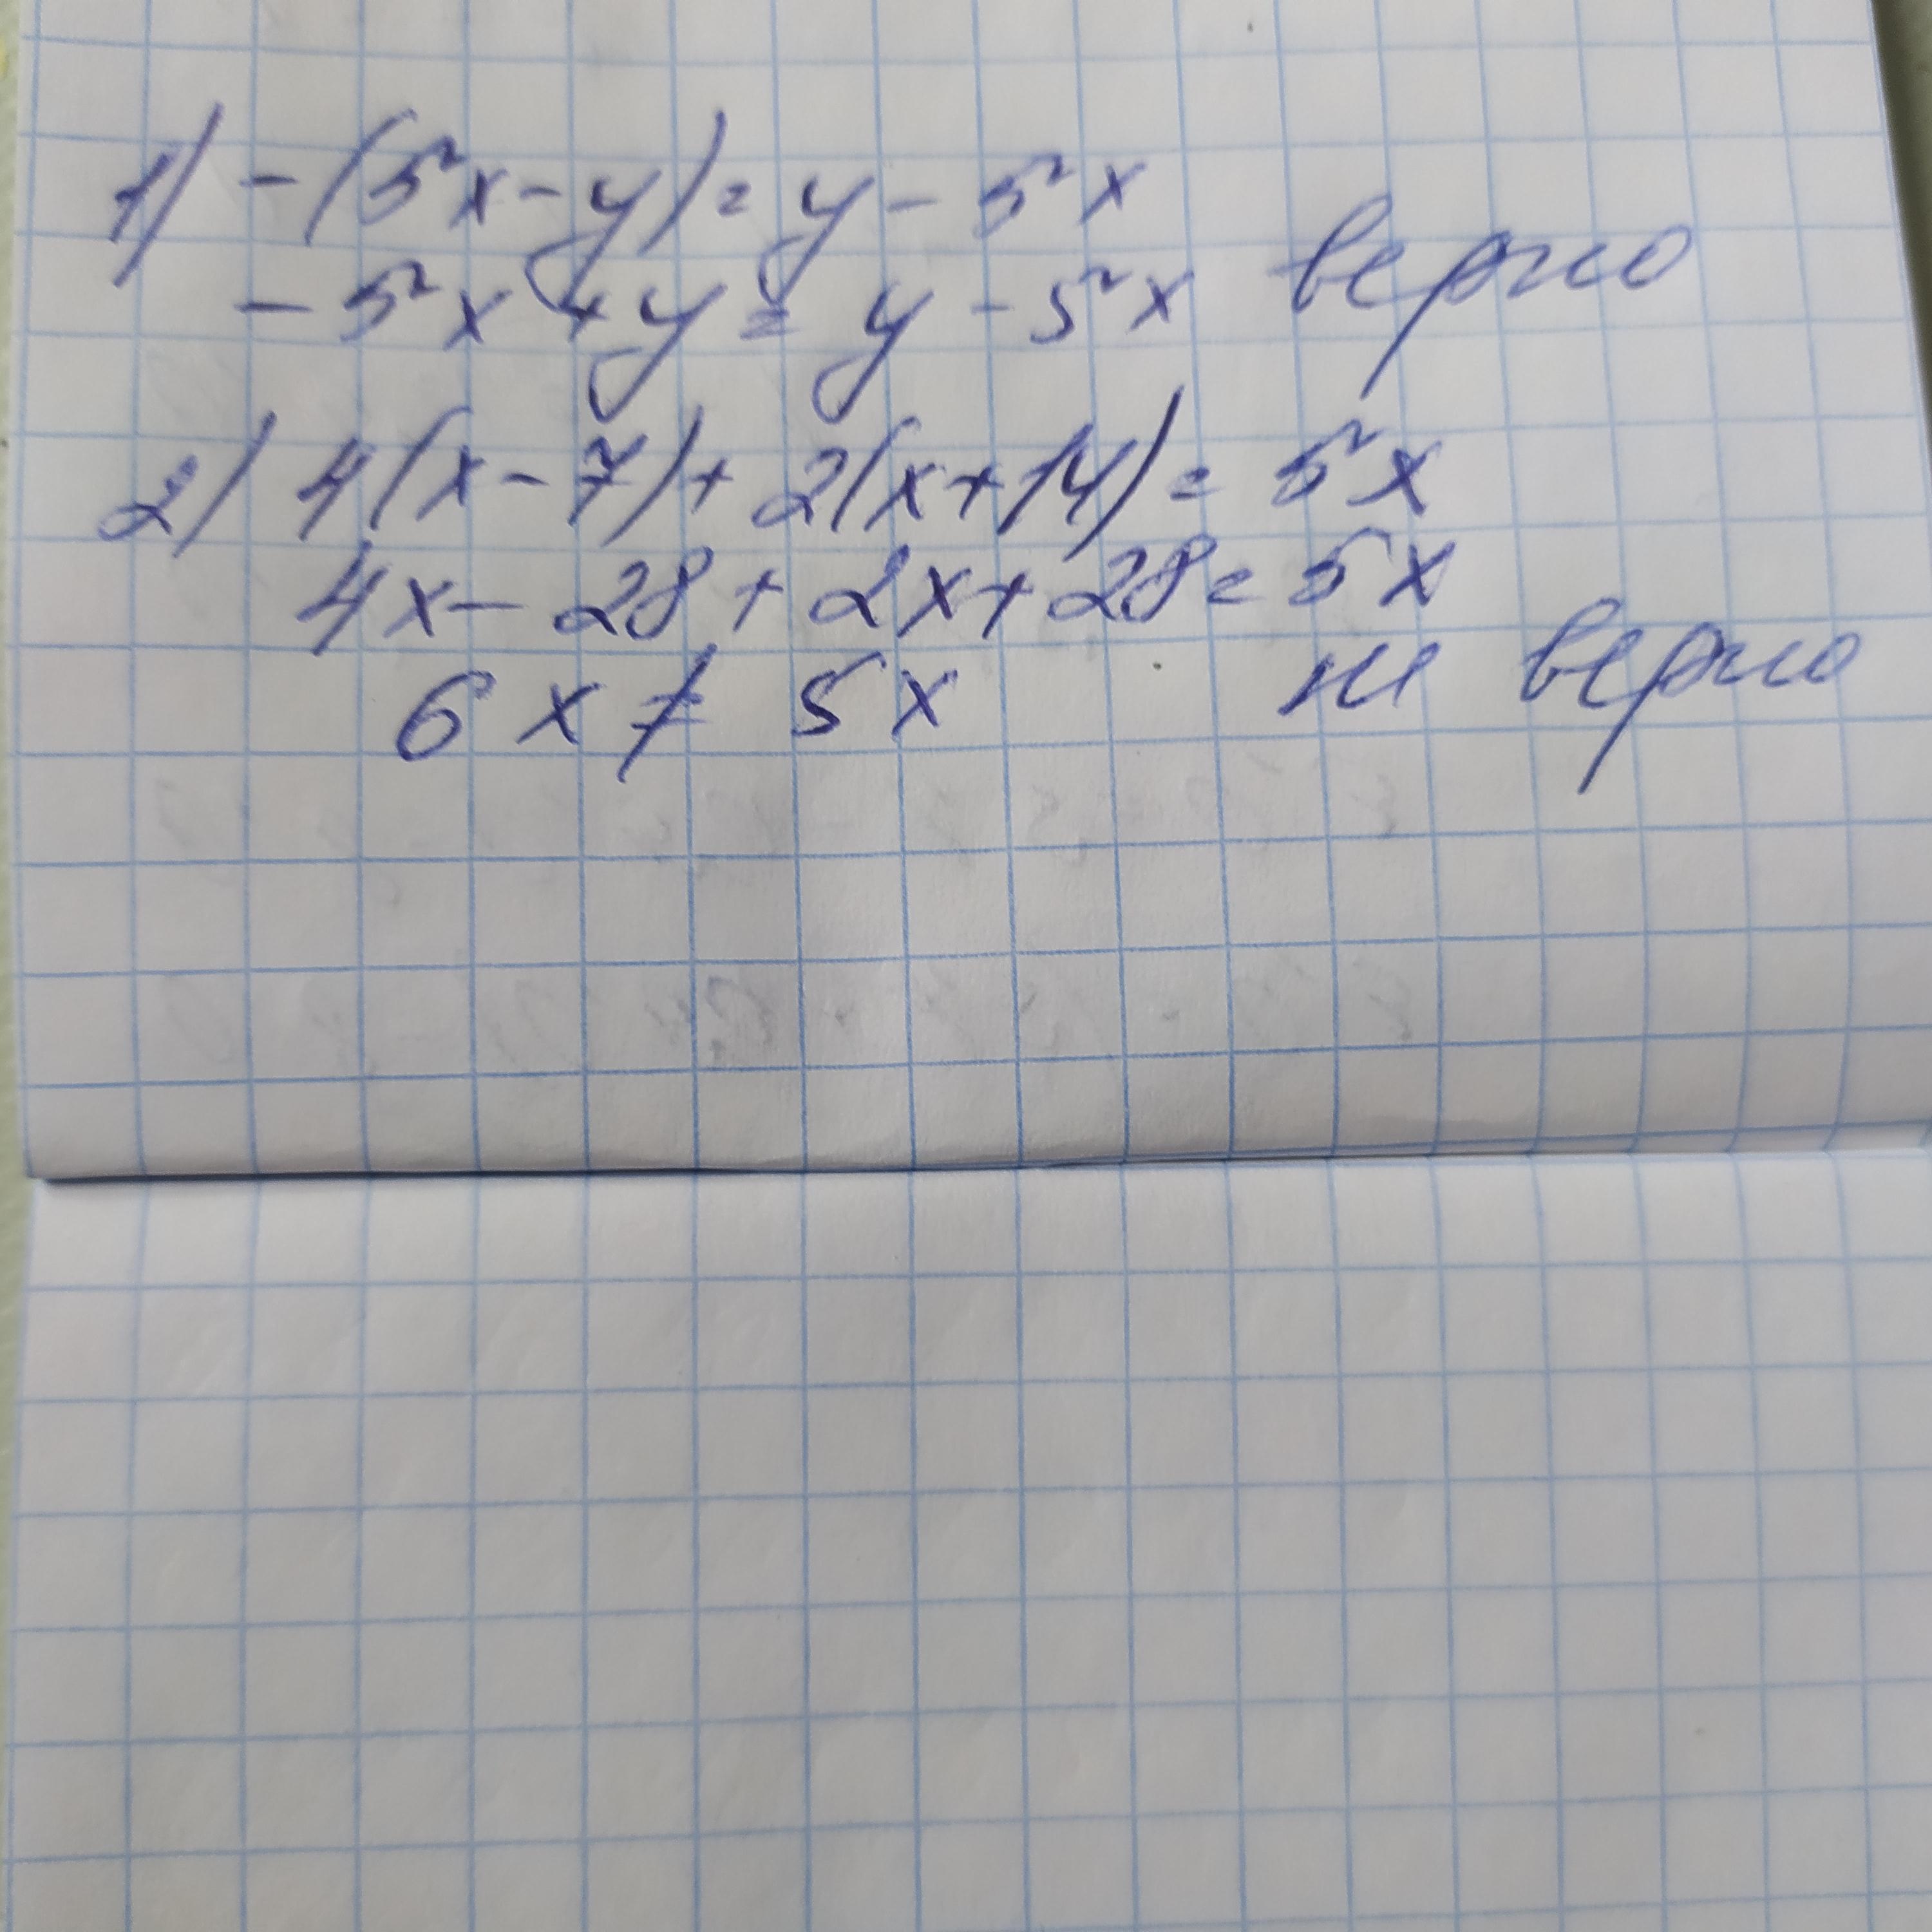 1) -(5²x-y)=y-5²x
-5²x+y=y-5²x верно
2) 4(x-7)+2(x+14)=5²x
4x-28+2x+28=5x
6x≠5x не верно